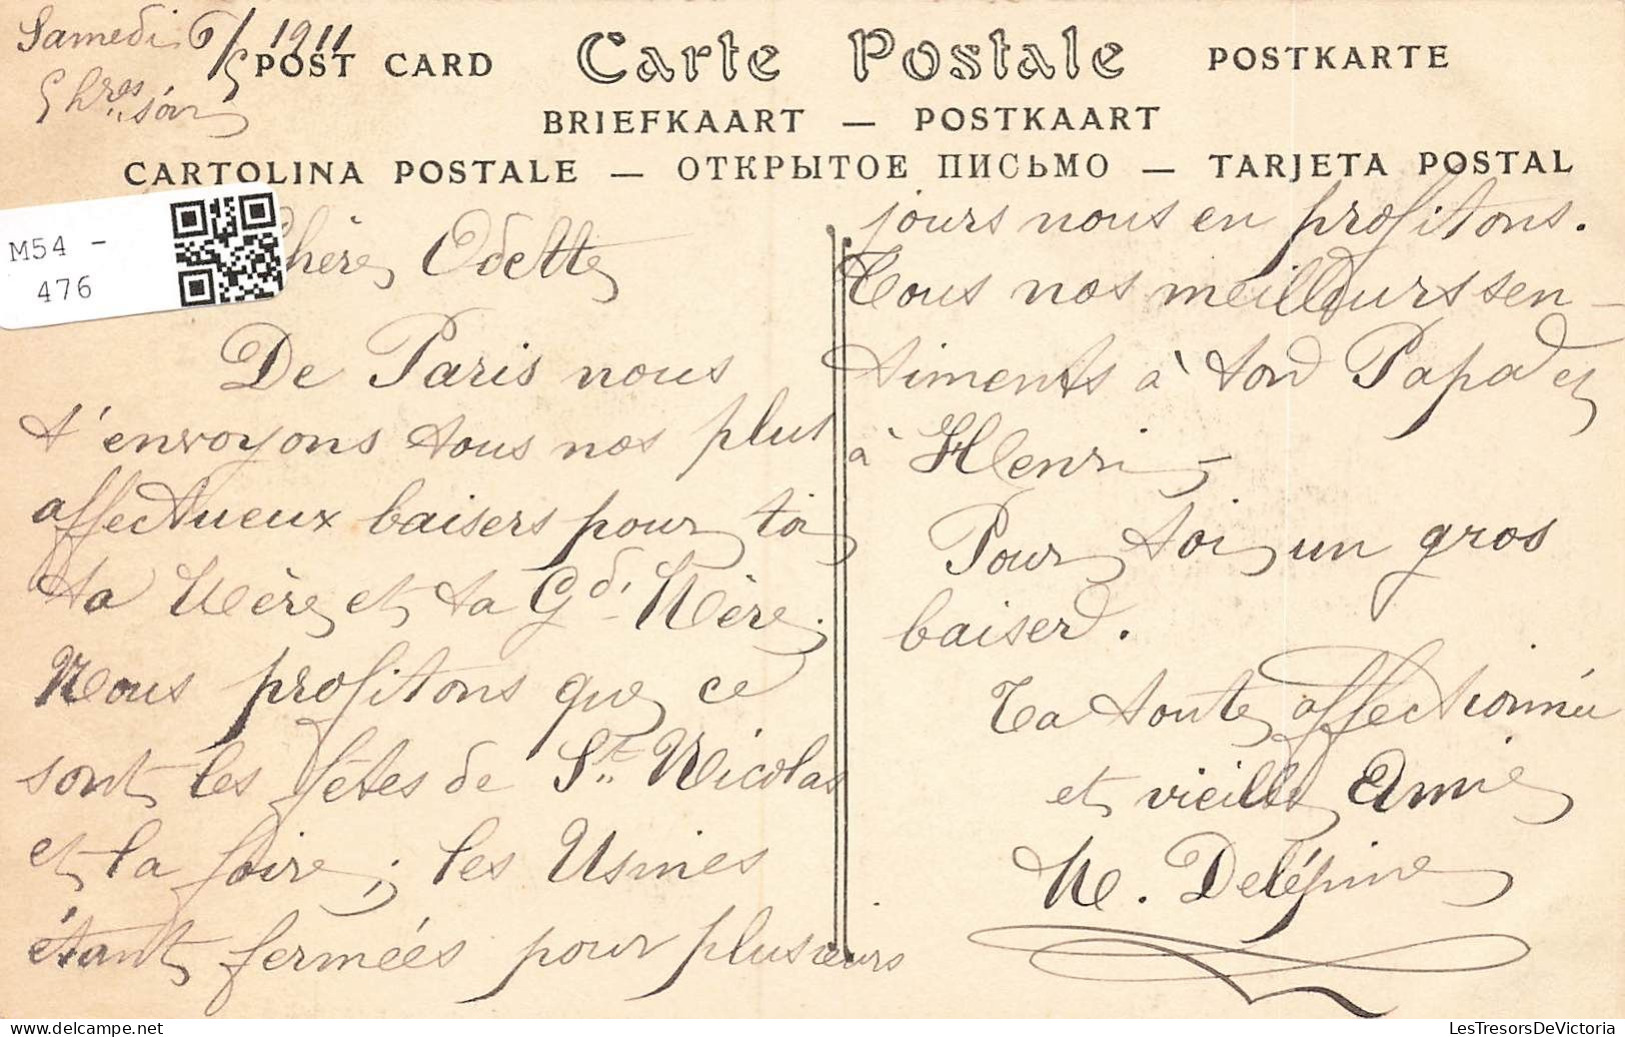 Samedi 6/5 1911
5 hres soir
POST CARD Carte Postale POSTKARTE
BRIEFKAART — POSTKAART
CARTOLINA POSTALE — ОТКРЫТОЕ ПИСЬМО — TARJETA POSTAL
M54 -
476
Chère Odette
De Paris nous
t'envoyons tous nos plus
affectueux baisers pour toi
ta Mère et ta Gd. Mère.
Nous profitons que ce
sont les fêtes de St. Nicolas
et la foire; les Usines
étant fermées pour plusieurs
jours nous en profitons.
Tous nos meilleurs sen-
timents à ton Papa et
à Henri -
Pour toi un gros
baiser.
Ta toute affectionnée
et vieille Amie
M. Delépine
LesTresorsDeVictoria